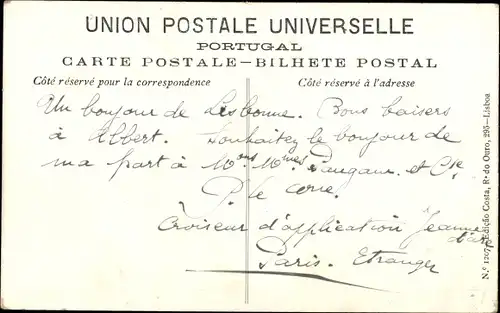 UNION POSTALE UNIVERSELLE
PORTUGAL
CARTE POSTALE—BILHETE POSTAL
Côté réservé pour la correspondence
Côté réservé à l'adresse
Un bonjour de Lisbonne. Bons baisers
à Albert. Souhaitez le bonjour de
ma part à Mons Mmes et Cie
P. le
Croiseur d'application Jeanne
d'arc
Paris. Etranger
N.º 12076 Edição Costa, R. do Ouro, 295—Lisboa